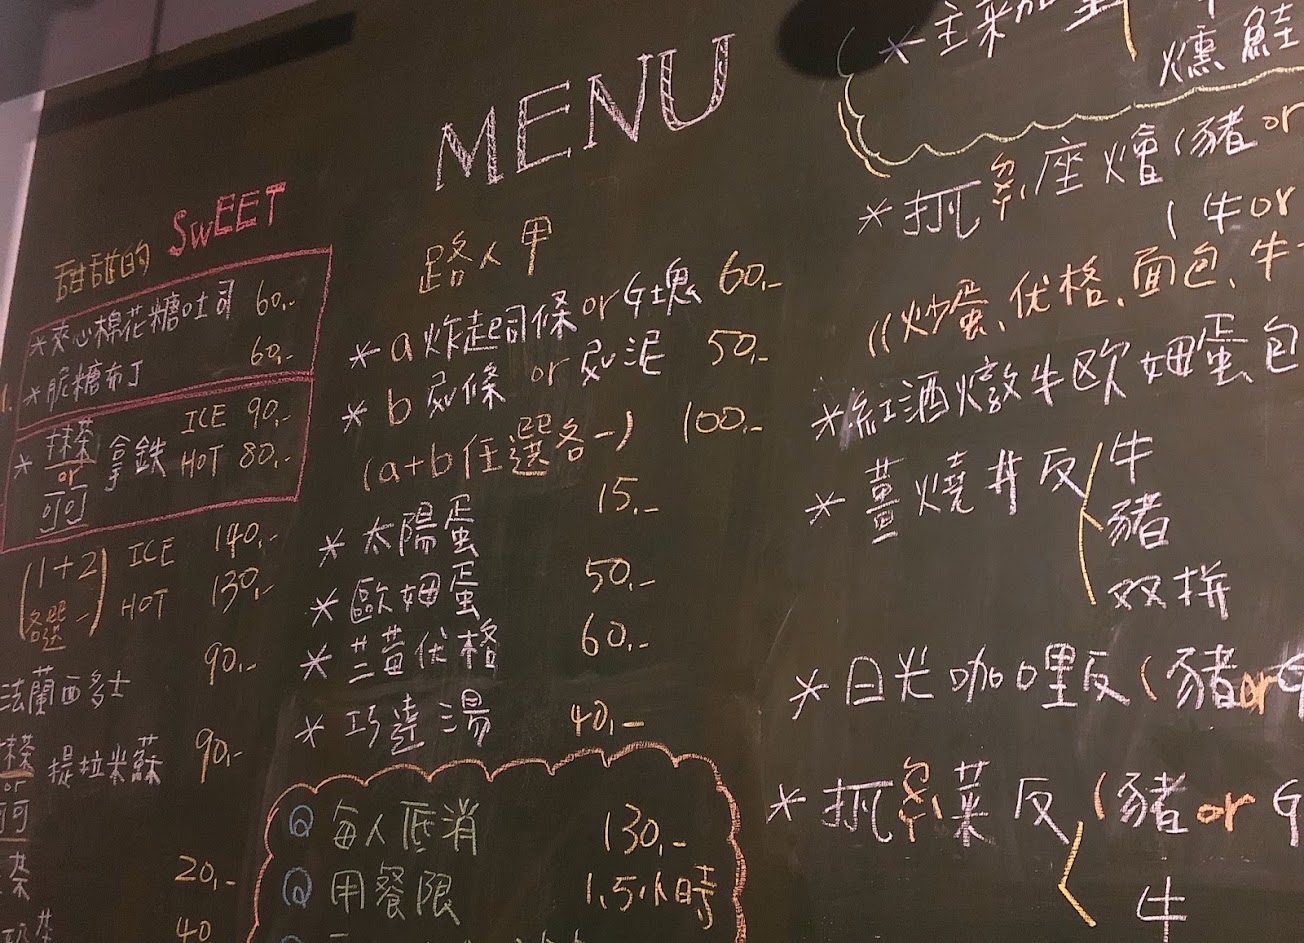 MENU
甜甜的 SWEET
*夾心棉花糖吐司 60.-
*脆糖布丁 60.-
*抹茶 or 可可 拿鐵 ICE 90.-
HOT 80.-
(1+2 各選一) ICE 140.-
HOT 130.-
法蘭西多士 90.-
抹茶 or 可可 提拉米蘇 90.-
20.-
40
路人甲
*a 炸起司條 or G塊 60.-
*b 薯條 or 薯泥 50.-
(a+b 任選各一) 100.-
*太陽蛋 15.-
*歐姆蛋 50.-
*兰黃优格 60.-
*巧達湯 40.-
Q 每人低消 130.-
Q 用餐限 1.5小時
*主菜加
燻鮭
座燴(豬or
(牛or
((炒蛋、优格、面包、牛
*紅酒燉牛欧姆蛋包
*薑燒丼反 牛
豬
双拼
*日光咖哩反(豬orG
菜反(豬orG
牛